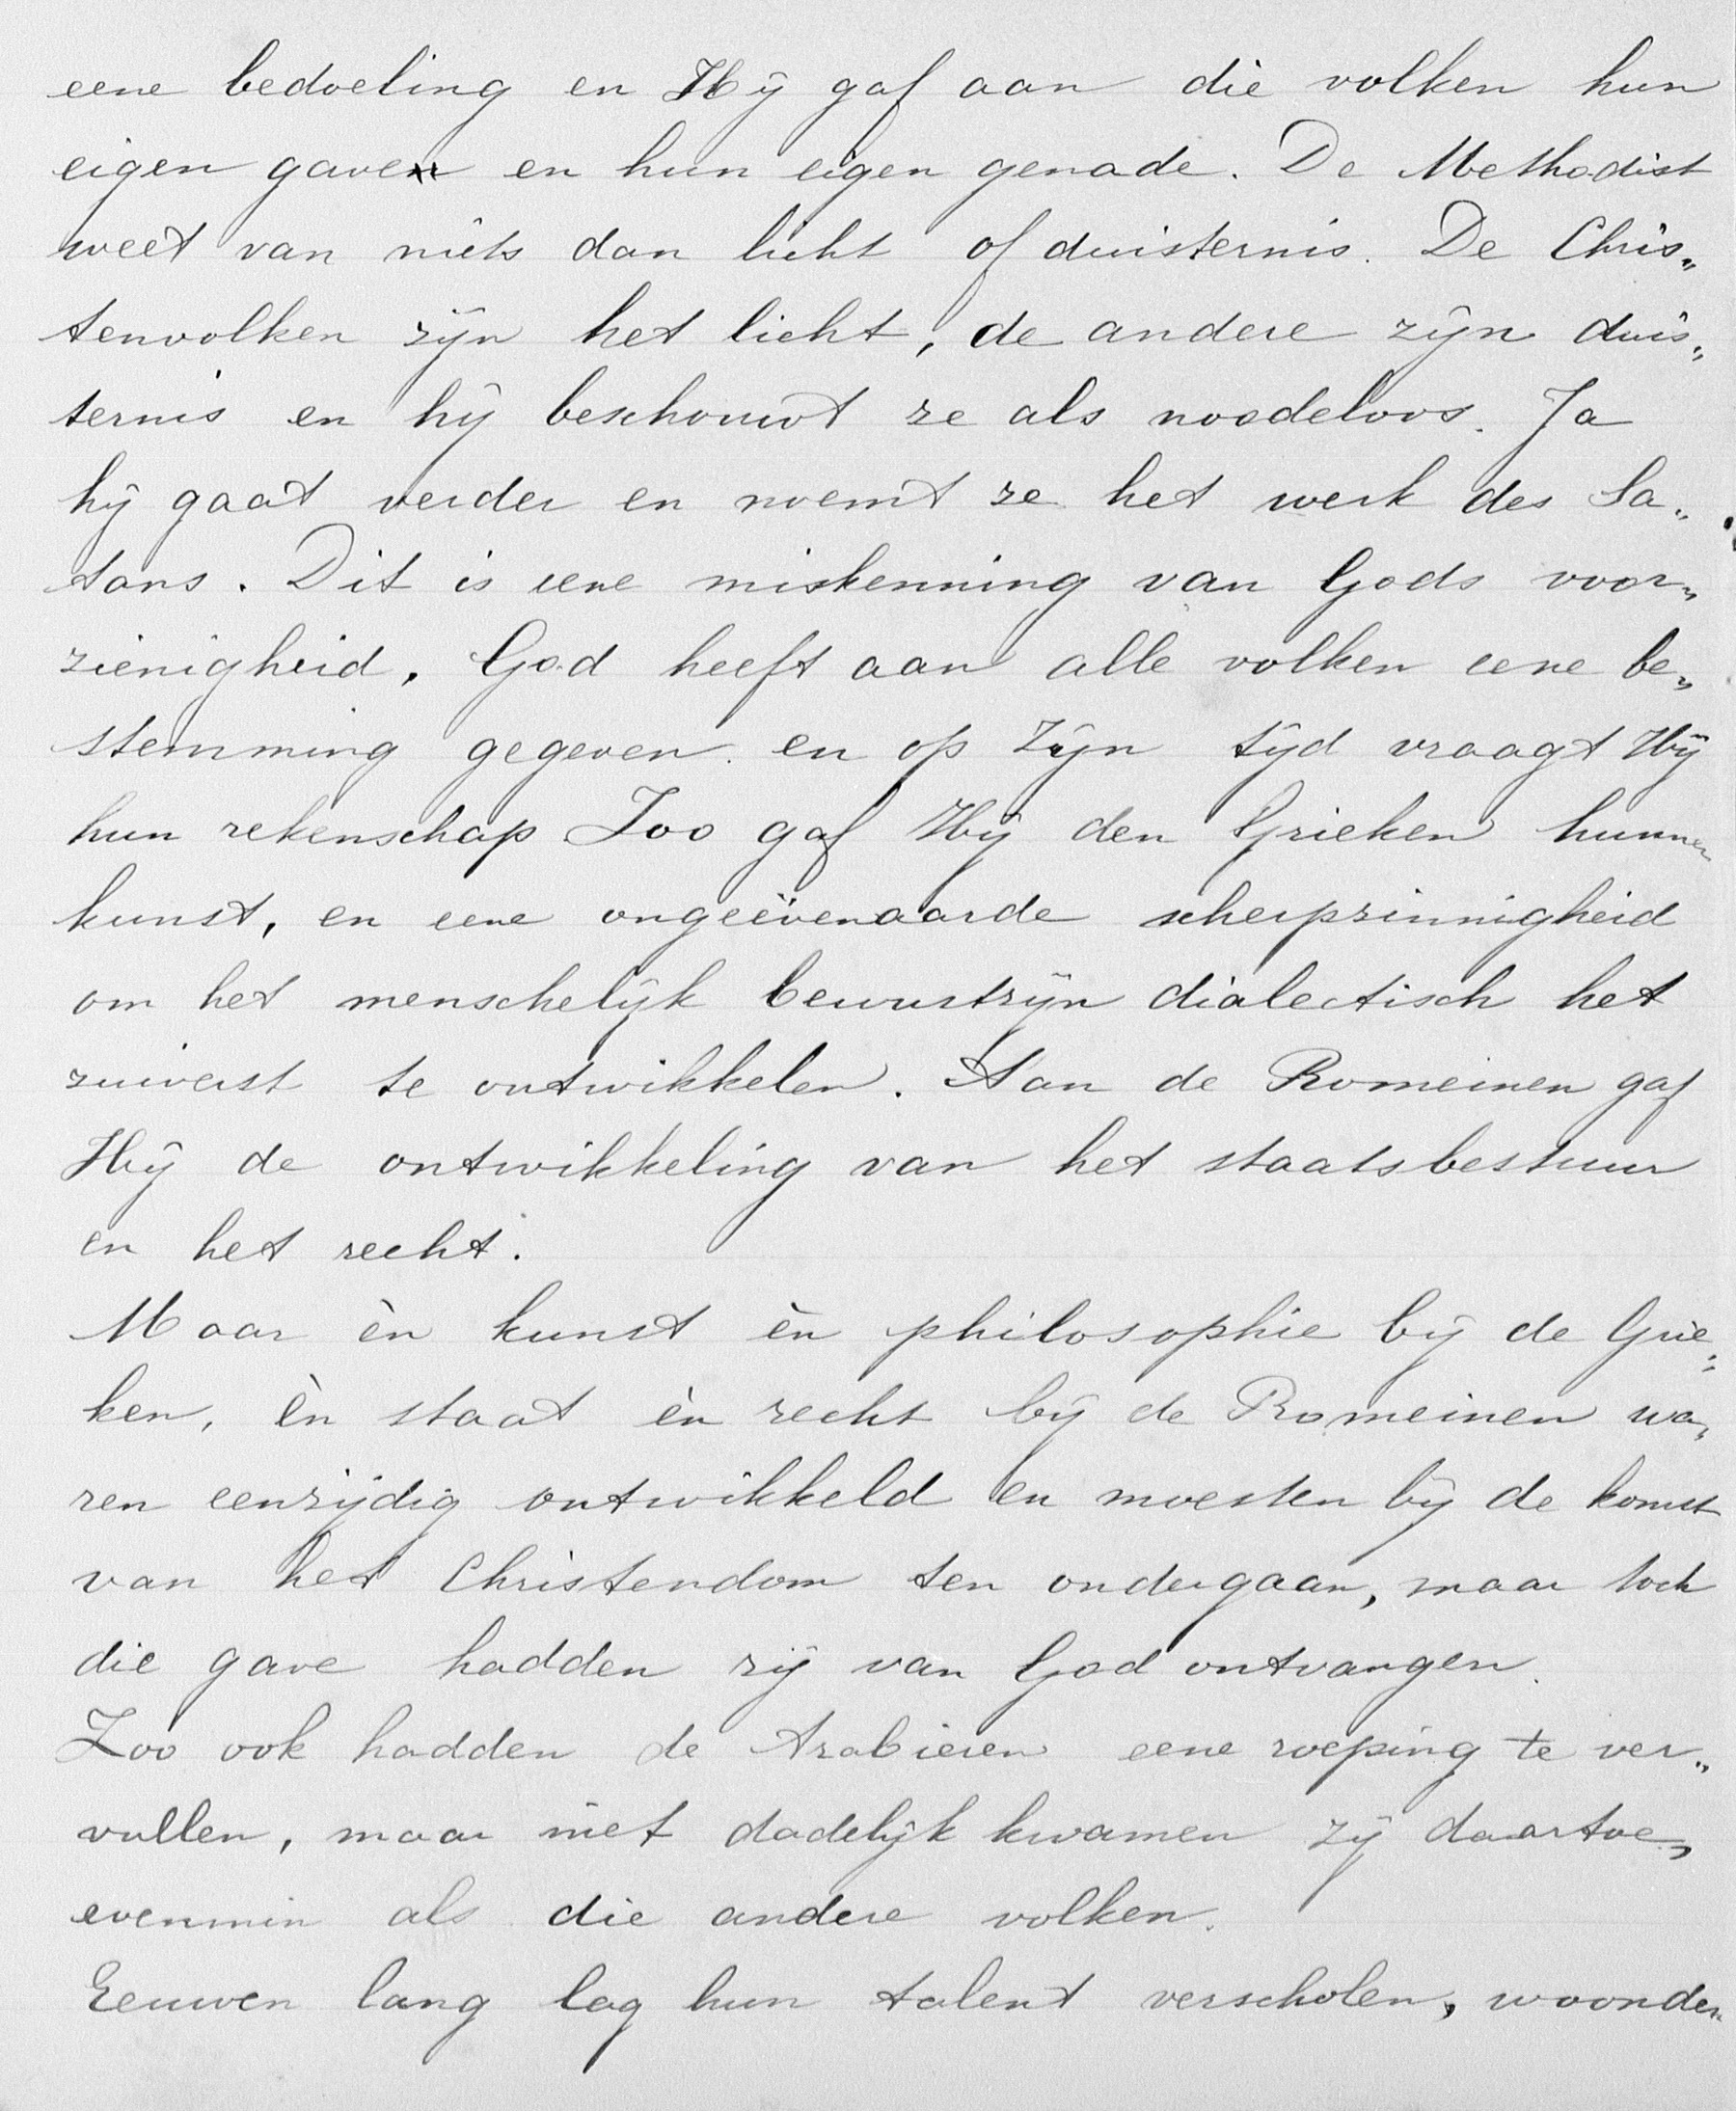 eene bedoeling en Hij gaf aan die volken hun
eigen gaven en hun eigen genade. De Methodist
weet van niets dan licht of duisternis. De Chris„
tenvolken zijn het licht, de andere zijn duis„
ternis en hij beschouwt ze als noodeloos. Ja
hij gaat verder en noemt ze het werk des Sa„
tans. Dit is eene miskenning van Gods voor„
zienigheid. God heeft aan alle volken eene be„
stemming gegeven en op Zijn tijd vraagt Hij
hun rekenschap Zoo gaf Hij den Grieken hunne
kunst, en eene ongeëvenaarde scherpzinnigheid
om het menschelijk bewustzijn dialectisch het
zuiverst te ontwikkelen. Aan de Romeinen gaf
Hij de ontwikkeling van het staatsbestuur
en het recht.
Maar èn kunst èn philosophie bij de Grie„
ken, èn staat èn recht bij de Romeinen wa„
ren eenzijdig ontwikkeld en moesten bij de komst
van het Christendom ten ondergaan, maar toch
die gave hadden zij van God ontvangen.
Zoo ook hadden de Arabieren eene roeping te ver„
vullen, maar niet dadelijk kwamen zij daartoe,
evenmin als die andere volken.
Eeuwen lang lag hun talent verscholen, woonden